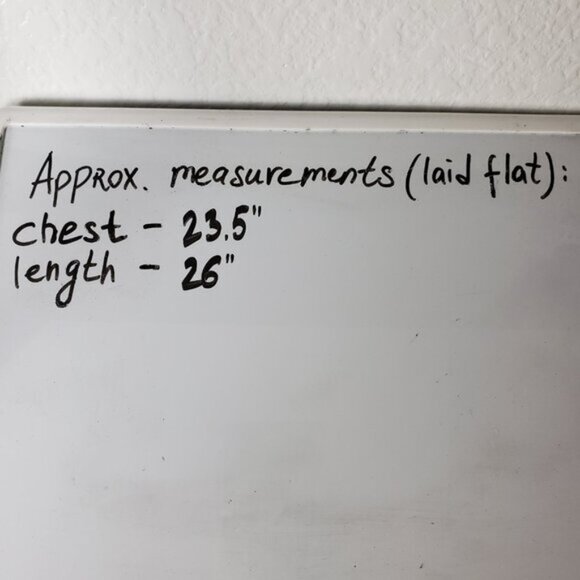 Approx. measurements (laid flat):
chest - 23.5"
length - 26"